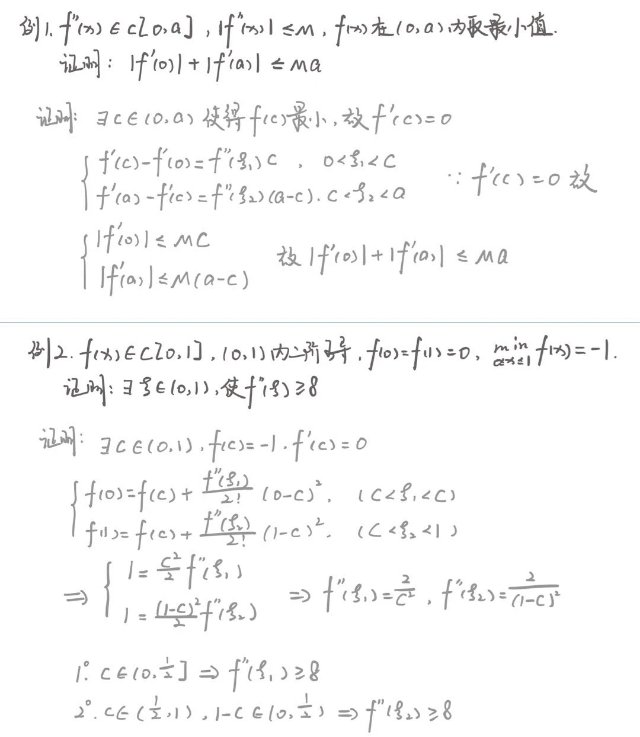 例1. f''(x)∈C[0,a], |f''(x)|≤M, f(x)在(0,a)内取最小值.
证明: |f'(0)|+|f'(a)|≤Ma
证明: ∃C∈(0,a)使得f(c)最小,故f'(c)=0
f'(c)-f'(0)=f''(ξ₁)C , 0<ξ₁<C
f'(a)-f'(c)=f''(ξ₂)(a-c). C<ξ₂<a ∵f'(c)=0故
|f'(0)|≤MC
|f'(a)|≤M(a-c) 故|f'(0)|+|f'(a)|≤Ma
例2. f(x)∈C[0,1], (0,1)内二阶可导, f(0)=f(1)=0, min_{0≤x≤1} f(x)=-1.
证明:∃ξ∈(0,1),使f''(ξ)≥8
证明: ∃C∈(0,1),f(c)=-1.f'(c)=0
f(0)=f(c)+f''(ξ₁)/2! (0-c)². (C<ξ₁<C)
f(1)=f(c)+f''(ξ₂)/2! (1-c)². (C<ξ₂<1)
⇒ 1=C²/2 f''(ξ₁)
1=(1-C)²/2 f''(ξ₂) ⇒ f''(ξ₁)=2/C², f''(ξ₂)=2/(1-C)²
1°. C∈(0,1/2] ⇒ f''(ξ₁)≥8
2°. C∈(1/2,1), 1-C∈(0,1/2) ⇒ f''(ξ₂)≥8